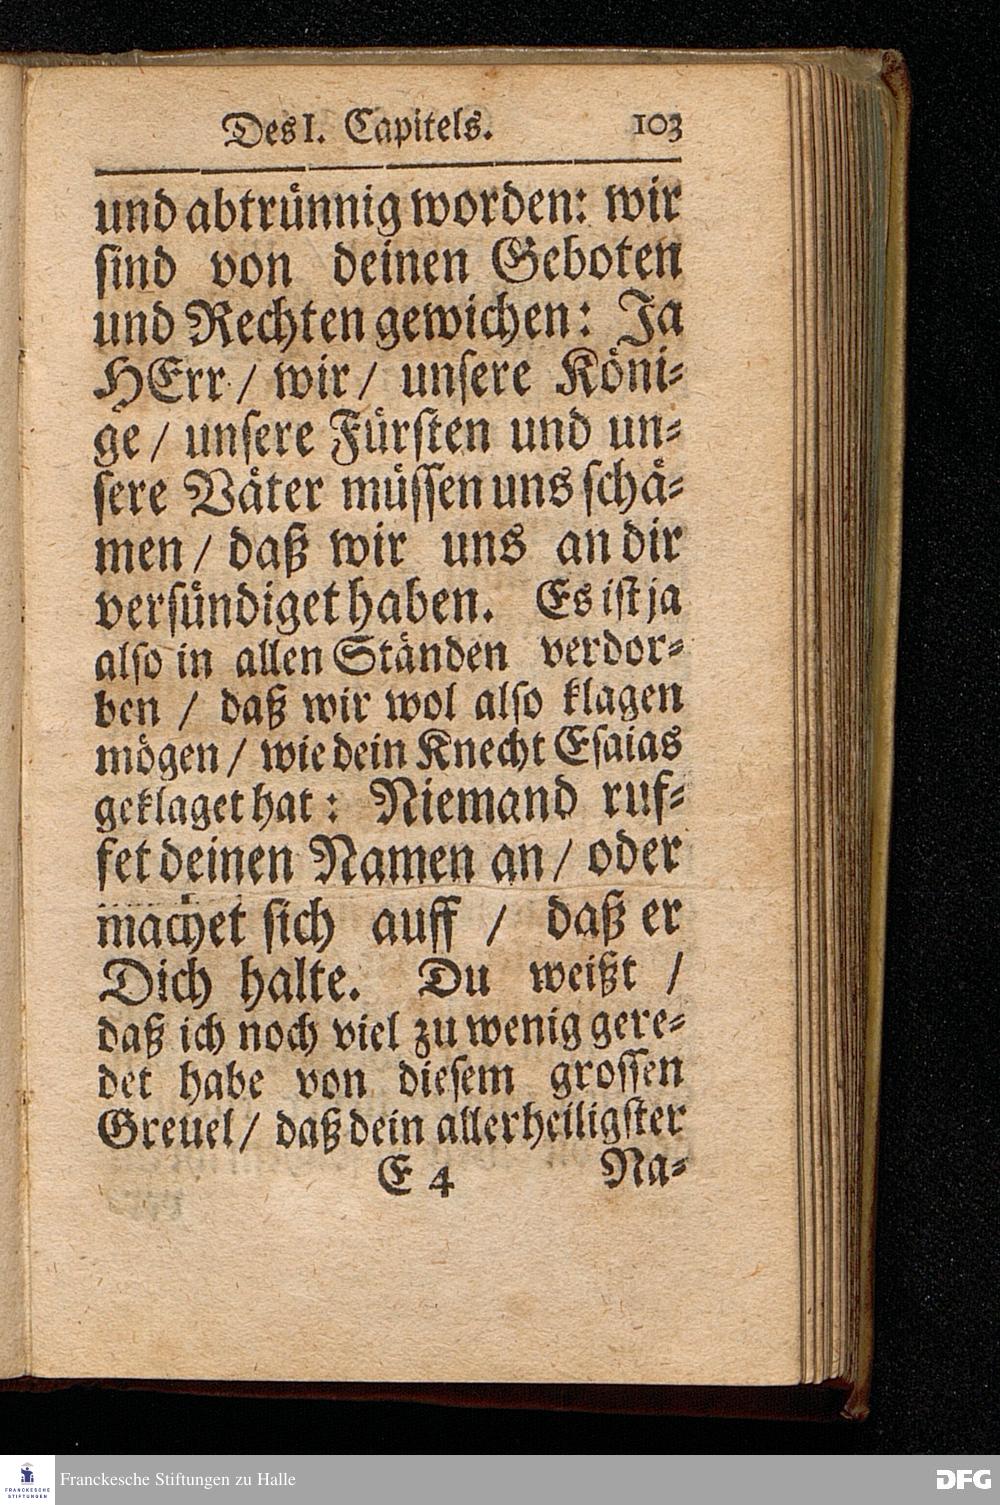 Des I. Capitels. 103
und abtrünnig worden: wir
sind von deinen Geboten
und Rechten gewichen: Ja
HErr / wir / unsere Köni-
ge / unsere Fürsten und un-
sere Väter müssen uns schä-
men / daß wir uns an dir
versündiget haben. Es ist ja
also in allen Ständen verdor-
ben / daß wir wol also klagen
mögen / wie dein Knecht Esaias
geklaget hat: Niemand ruf-
fet deinen Namen an / oder
machet sich auff / daß er
Dich halte. Du weißt /
daß ich noch viel zu wenig gere-
det habe von diesem grossen
Greuel / daß dein allerheiligster
E 4 Na-
FRANCKESCHE
STIFTUNGEN
Franckesche Stiftungen zu Halle
DFG